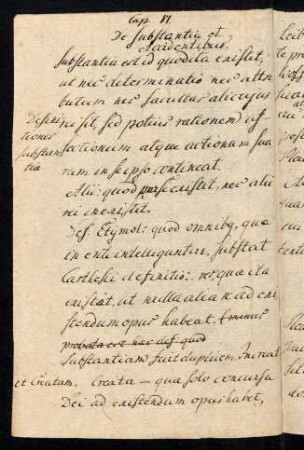 Cap. VI.
De Substantia et
Accidentibus.
Substantia est id quod ita existit,
ut nec determinatio nec attri
butum nec facultas alicujus
rei sit, sed potius rationem af
fectionum atque actionum sua
rum in se ipso contineat.
Defini
tiones
substan
tiae
Alii: quod per se existit, nec alii
rei inexistit.
Def. Etymol: quod omnibq, quae
in ente intelliguntur, substat
Carthesii definitio: res, quae ita
existat, ut nulla alia re ad exi
stendum opus habeat. (minus
probata est haec def. quod
Substantiam facit duplicem. Increat
et Creatam. Creata — quae solo concursu
Dei ad existendum opus habet,